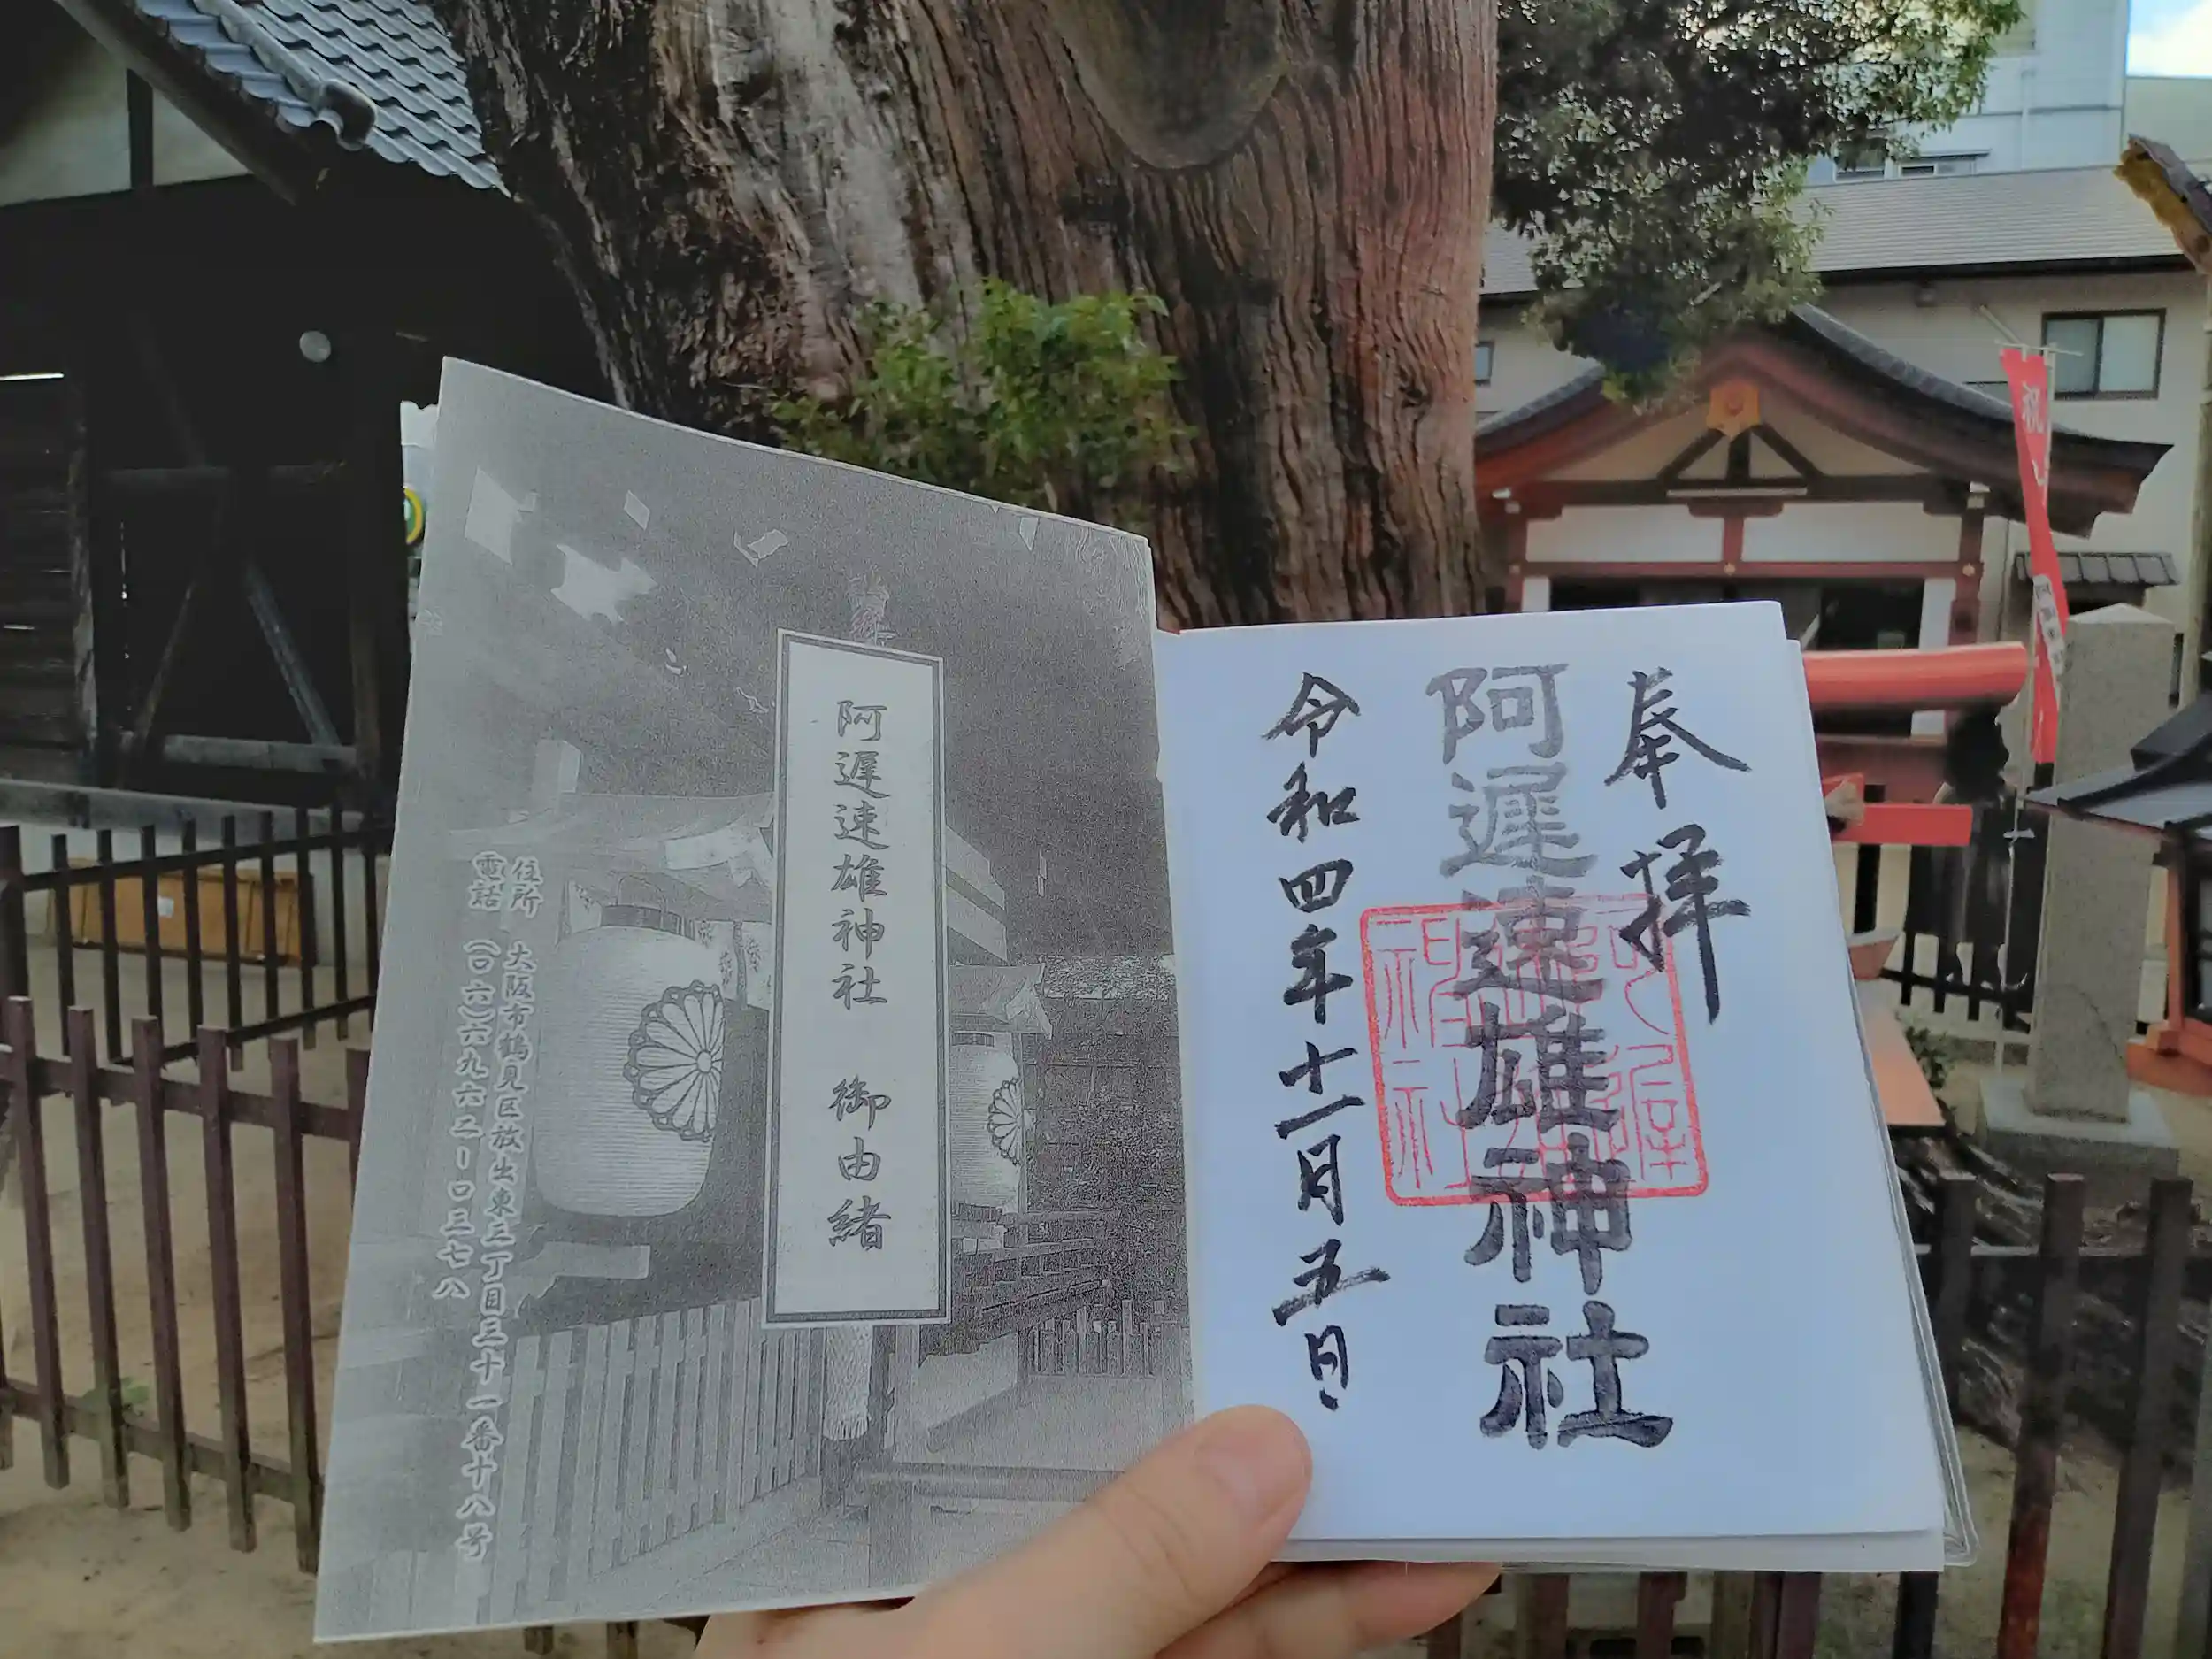 奉拝
阿遅速雄神社
令和四年十一月五日
阿遅速雄神社 御由緒
住所 大阪市鶴見区放出東三丁目三十一番十八号
電話 (〇六)六九六二-〇三七八
祝